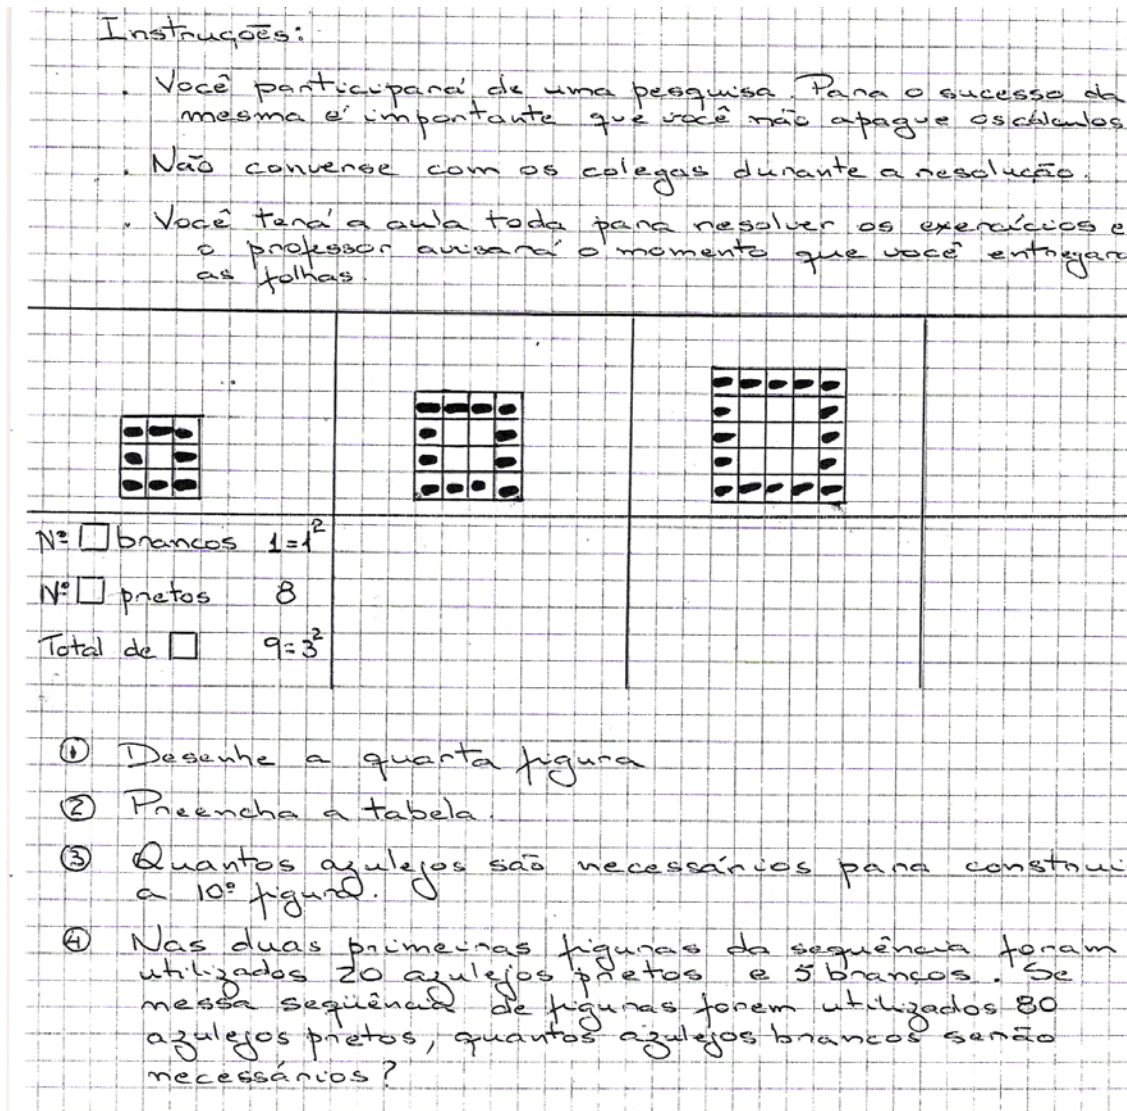 Instruções:
. Você participará de uma pesquisa. Para o sucesso da
mesma é importante que você não apague os cálculos
. Não converse com os colegas durante a resolução.
. Você terá a aula toda para resolver os exercícios e
o professor avisará o momento que você entregará
as folhas.
Nº □ brancos 1=1²
Nº □ pretos 8
Total de □ 9=3²
① Desenhe a quarta figura
② Preencha a tabela.
③ Quantos azulejos são necessários para construi
a 10ª figura.
④ Nas duas primeiras figuras da sequência foram
utilizados 20 azulejos pretos e 5 brancos. Se
nessa seqüência de figuras forem utilizados 80
azulejos pretos, quantos azulejos brancos serão
necessários?